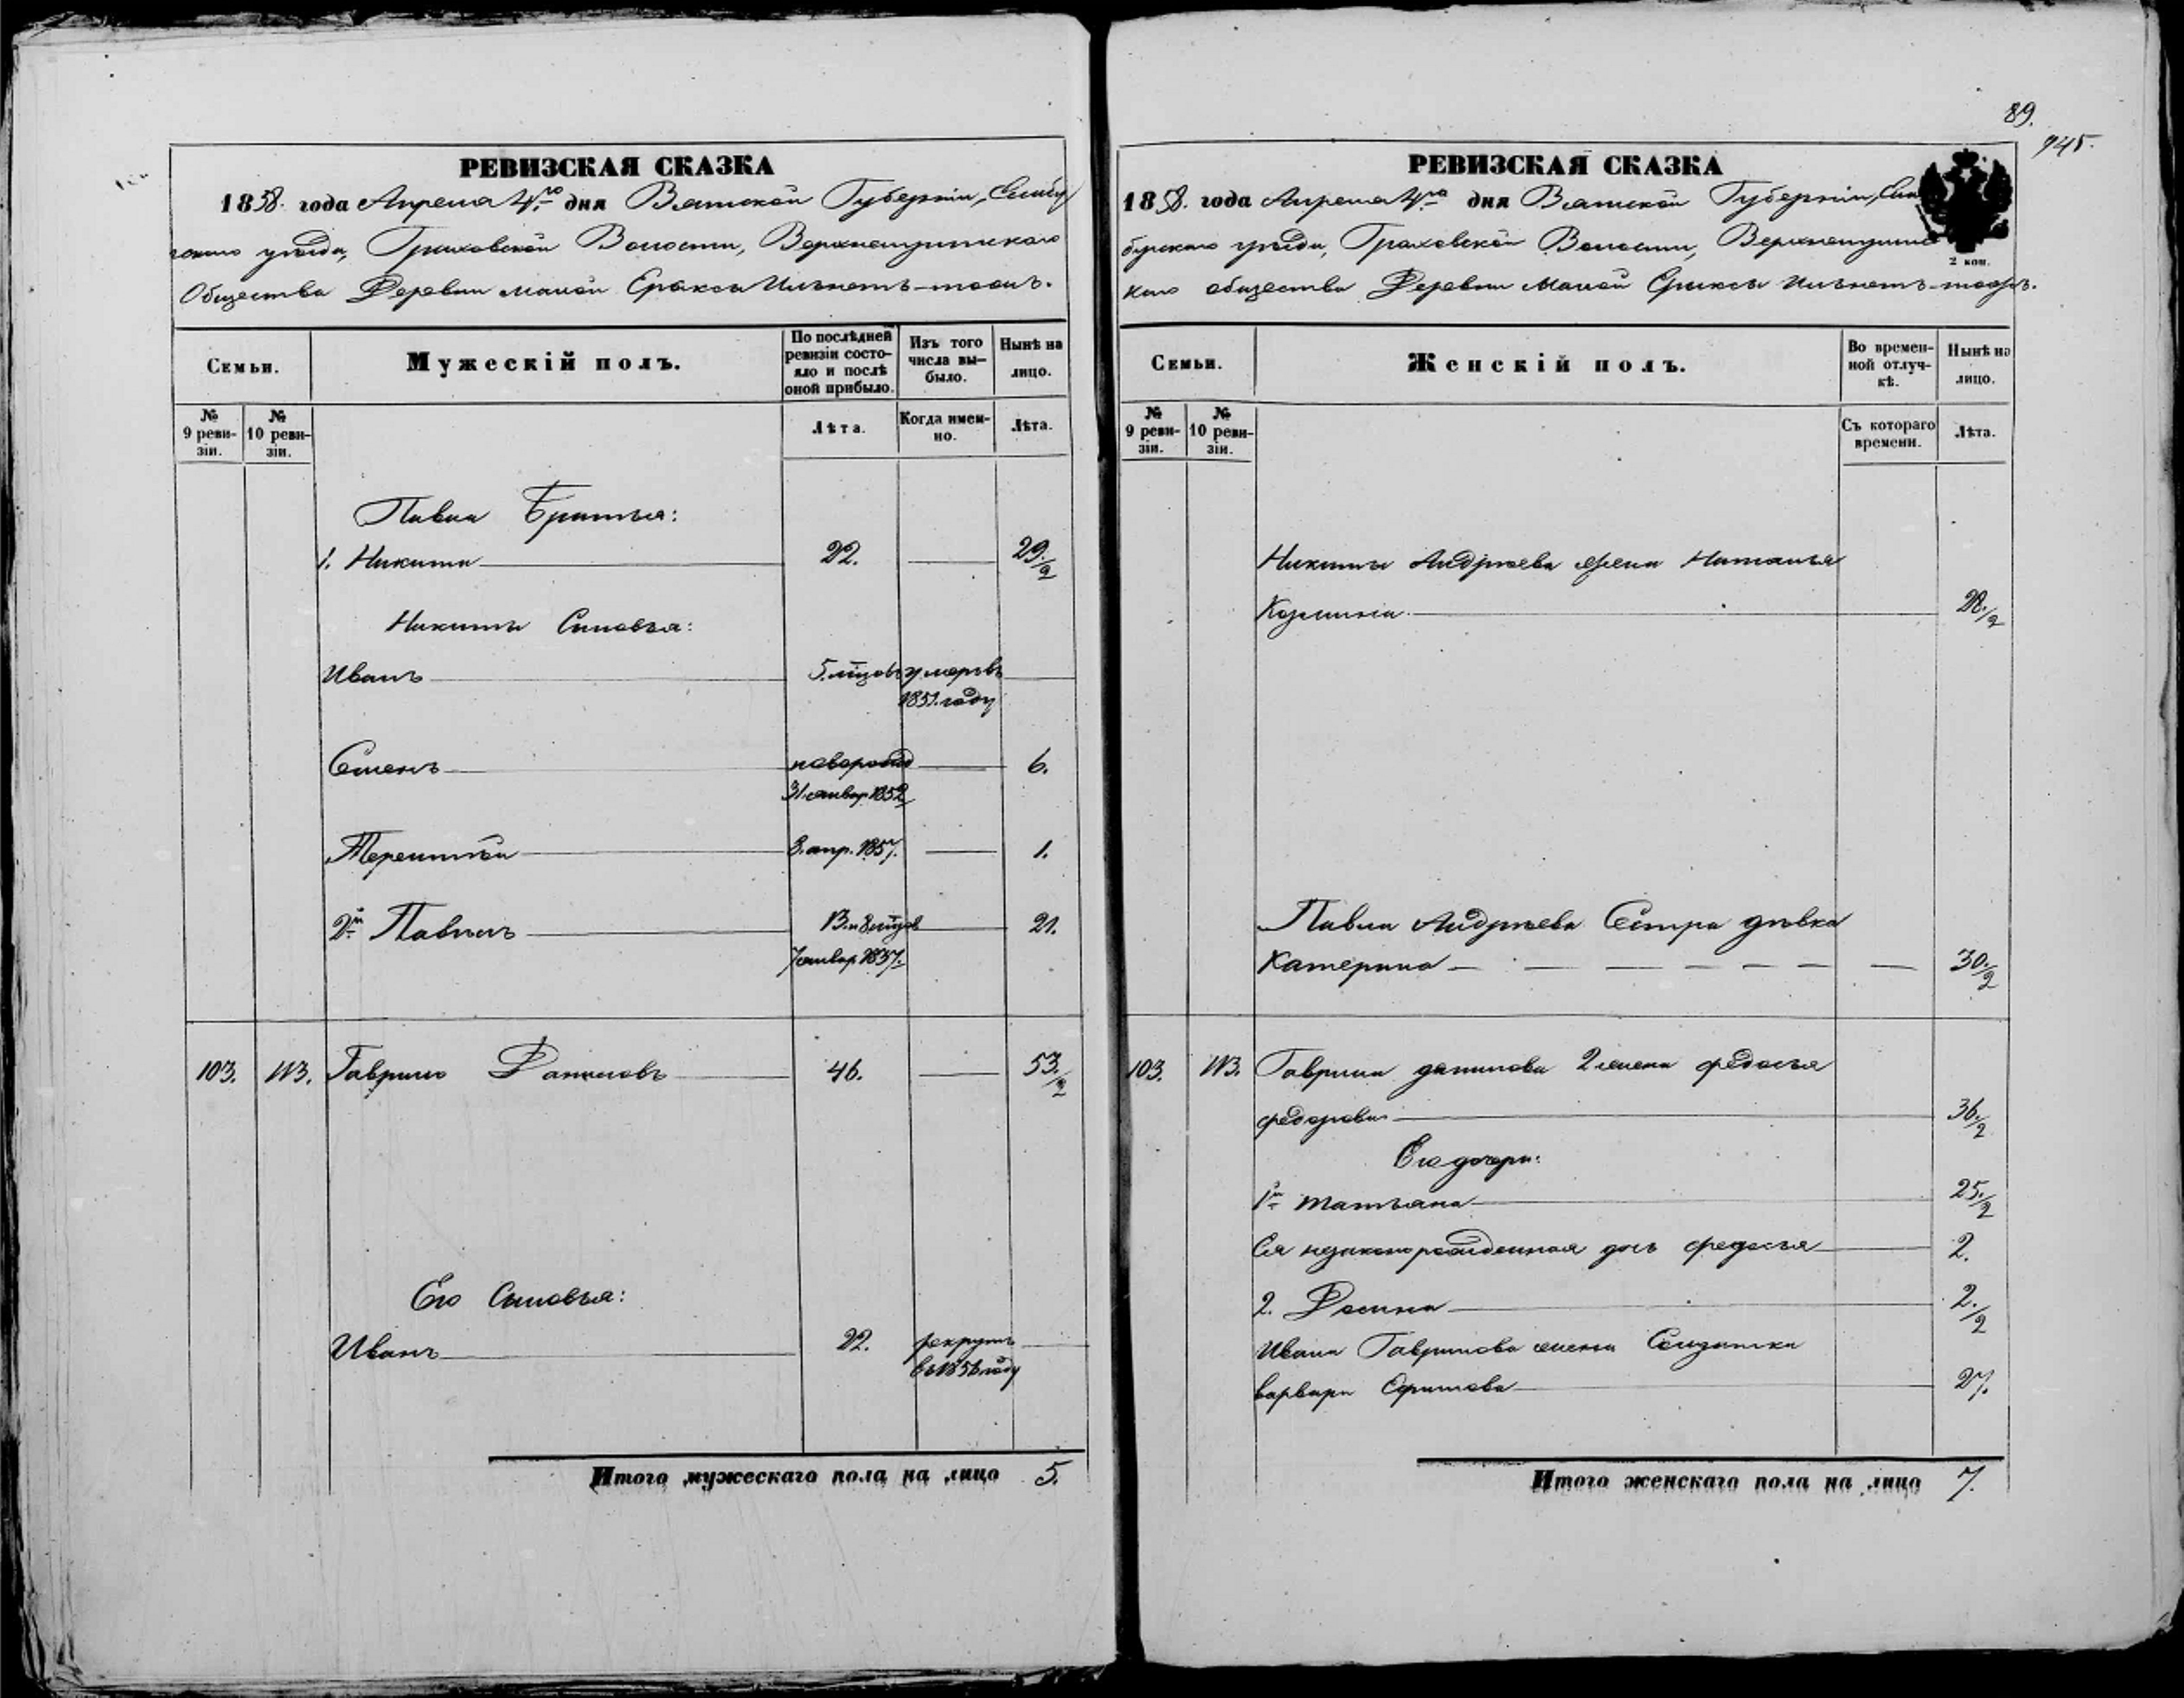 89.
945.
РЕВИЗСКАЯ СКАЗКА
1858. года Апреля 4го дня Вятской Губернiи, Елабу
жскаго уѣзда, Граховской Волости,
Общества Деревни малой Ерыксы
Семьи.
Мужескiй полъ.
По послѣдней ревизiи состояло и послѣ оной прибыло.
Изъ того числа выбыло.
Нынѣ на лицо.
№ 9 ревизiи.
№ 10 ревизiи.
Лѣта.
Когда именно.
Лѣта.
Павла Братья:
1. Никита 22. 29./2
Никиты Сыновья:
Иванъ 5. мцовъ умеръ въ
1851. году
Семенъ новорожд 6.
31. январ 1852
Терентiй 3. апр. 1857. 1.
2й Павелъ 13. и 8 мцов 21.
7 январ 1837.
103. 113. Гаврило Даниловъ 46. 53./2
Его Сыновья:
Иванъ 22. рекрутъ
въ 1856 году
Итого мужескаго пола на лицо 5.
РЕВИЗСКАЯ СКАЗКА
1858. года Апреля 4го дня Вятской Губернiи, Ела
бужскаго уѣзда, Граховской Волости,
каго общества Деревни Малой Ерыксы
2 коп.
Семьи.
Женскiй полъ.
Во временной отлучкѣ.
Нынѣ на лицо.
№ 9 ревизiи.
№ 10 ревизiи.
Съ котораго времени.
Лѣта.
Никиты Андрѣева жена Наталья
Козмина 28./2
Павла Андрѣева Сестра дѣвка
Катерина 30./2
103. 113. Гаврила данилова 2 жена федосья
федорова 36./2
Его дочери:
1я татьяна 25./2
Ея незаконорожденная дочь федосья 2.
2. 2./2
Ивана Гаврилова жена Солдатка
варвара 27.
Итого женскаго пола на лицо 7.